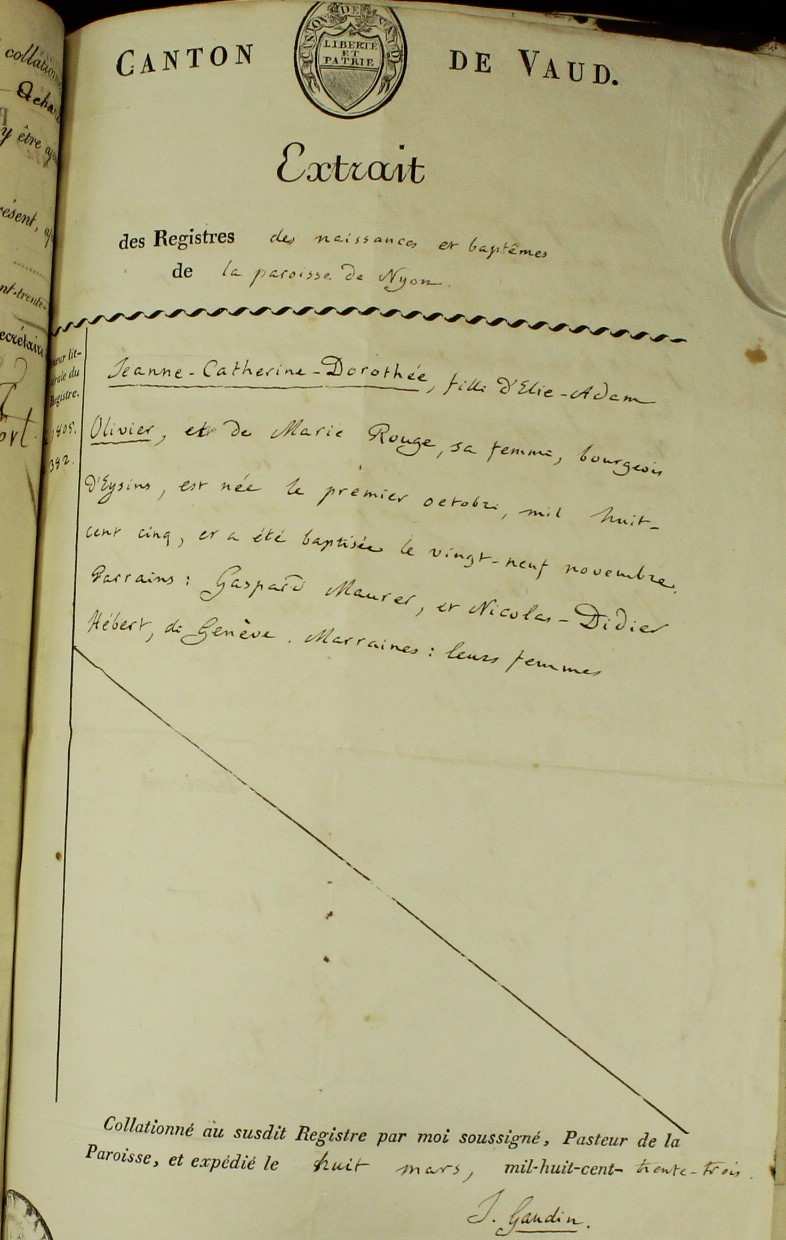 collation
y être
résent,
nt-trente-
ecrétaire
CANTON DE VAUD
LIBERTÉ
ET
PATRIE
CANTON DE VAUD.
Extrait
des Registres des naissances et baptêmes
de la paroisse de Nyon.
Registre.
1805.
382.
Jeanne-Catherine-Dorothée, fille d'Elie-Adam
Olivier, et de Marie Rouge, sa femme, bourgeois
d'Eysins, est née le premier octobre, mil huit-
cent cinq, et a été baptisée le vingt-neuf novembre.
Parrains: Gaspard Maurer, et Nicolas-Didier
Hébert, de Genève. Marraines: leurs femmes
Collationné au susdit Registre par moi soussigné, Pasteur de la
Paroisse, et expédié le huit mars, mil-huit-cent-trente-trois.
J. Gaudin.